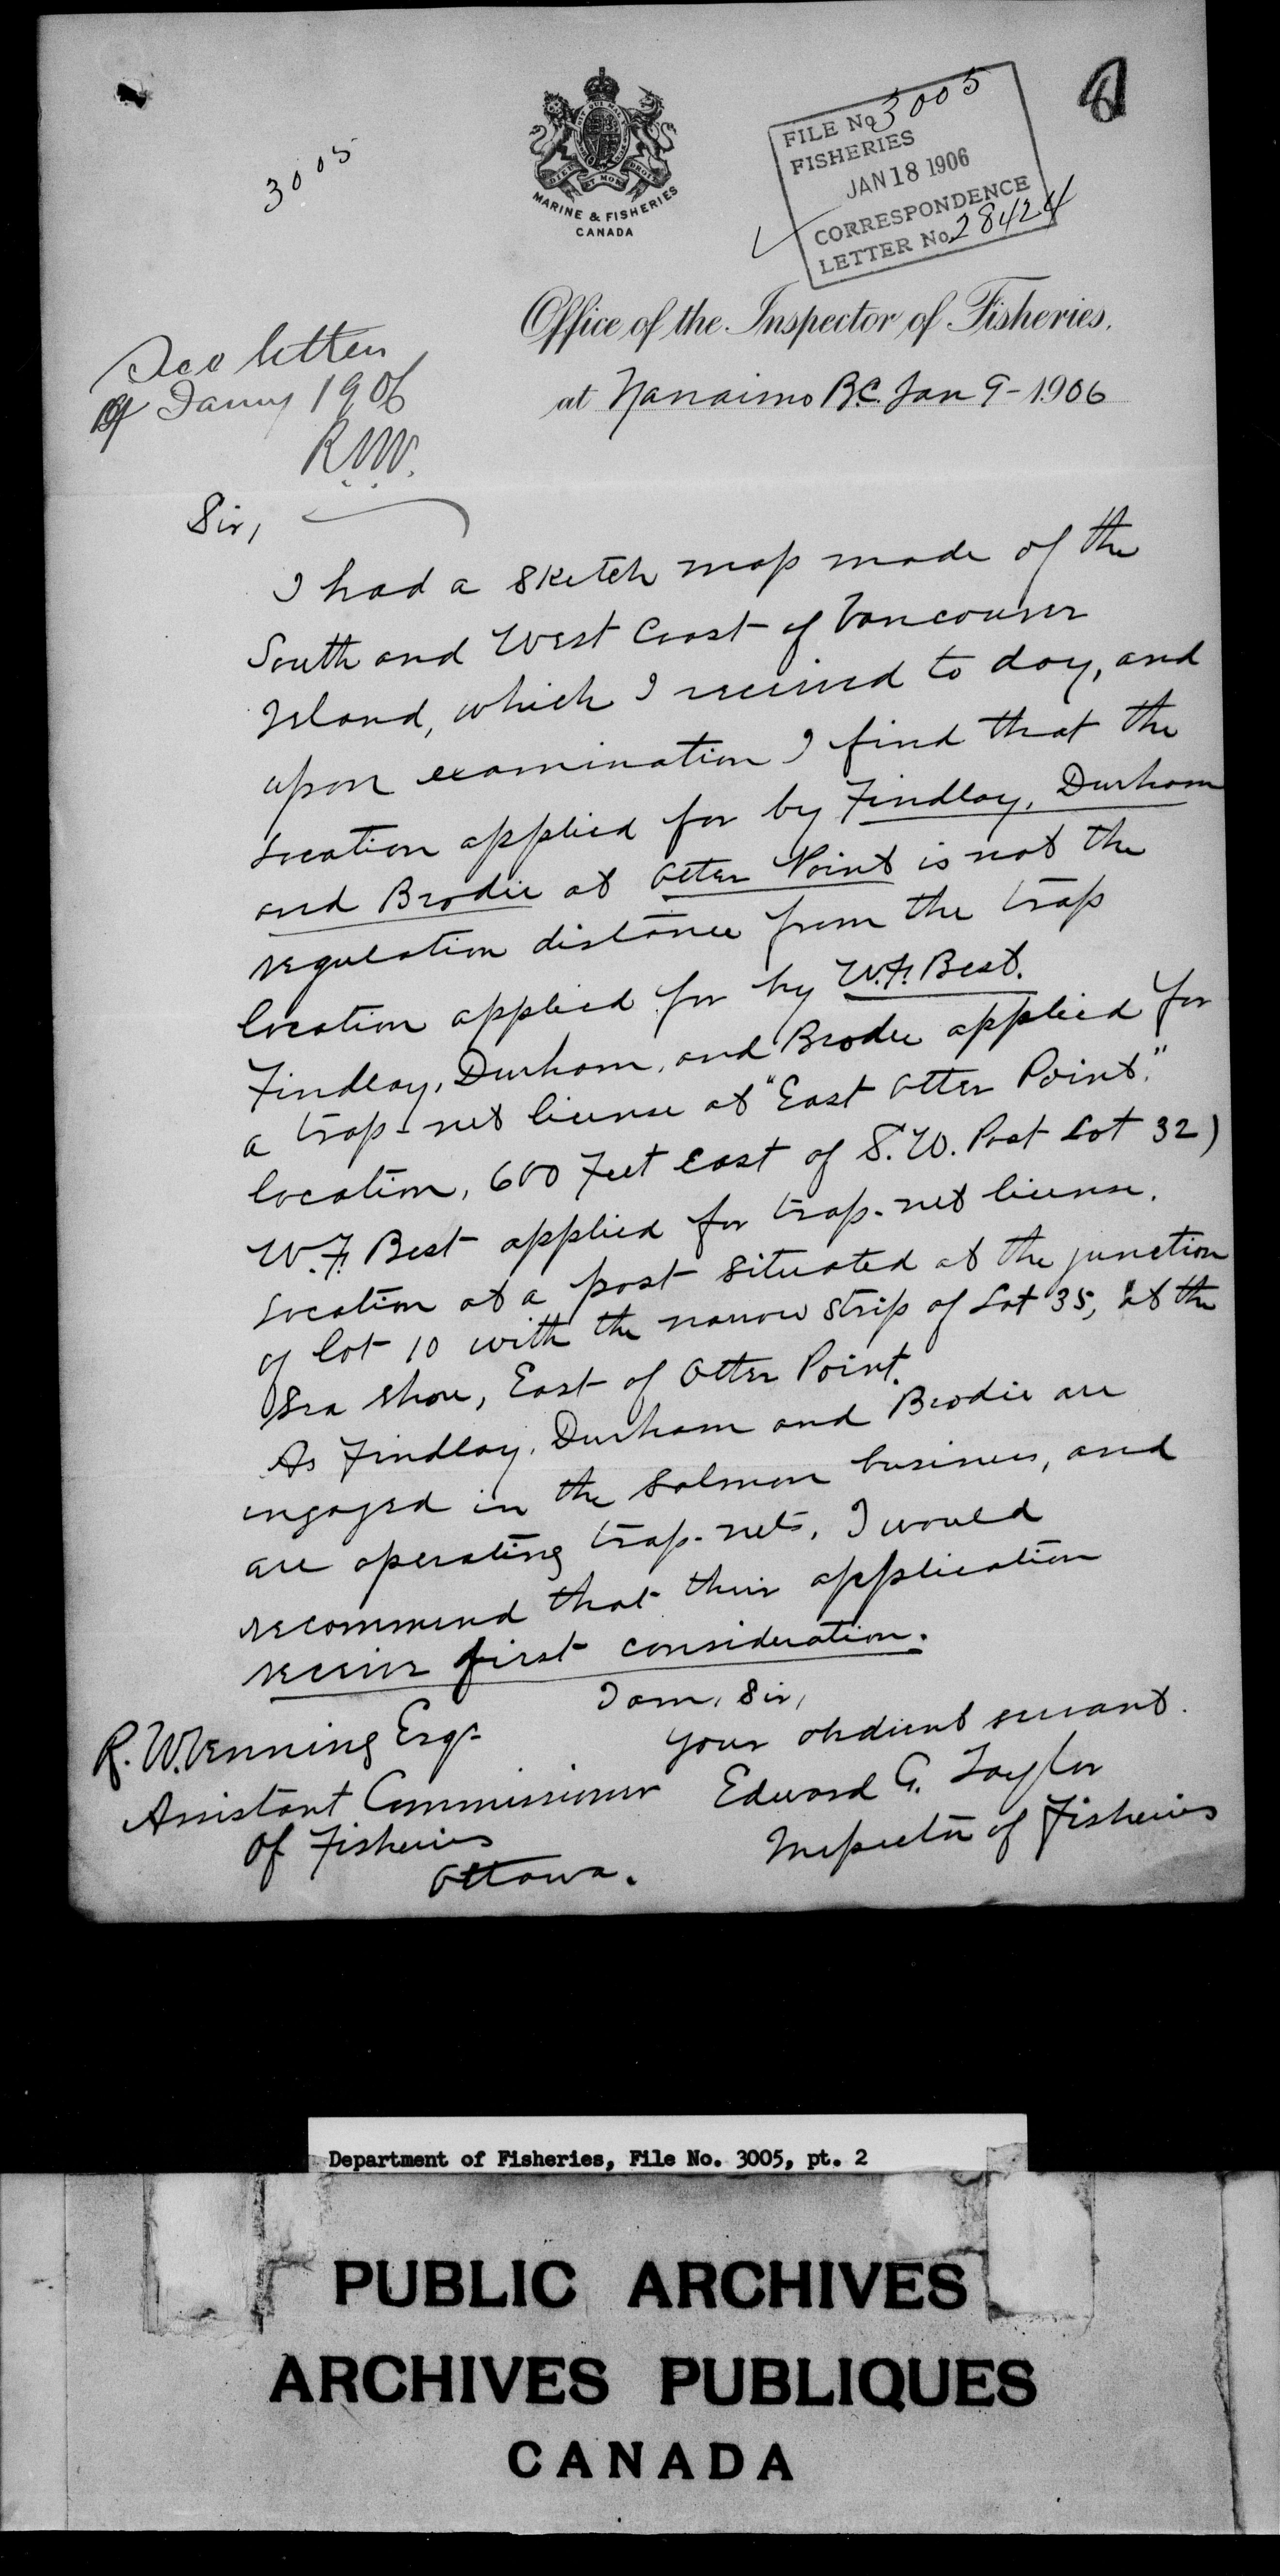 8
3005
DIEU ET MON DROIT
MARINE & FISHERIES
CANADA
FILE No 3005
FISHERIES
JAN 18 1906
CORRESPONDENCE
LETTER No. 28424
Office of the Inspector of Fisheries.
at Nanaimo B.C. Jan 9 - 1906
See letter
of Janry 1906
R.N.V.
Sir,
I had a sketch map made of the
South and West Coast of Vancouver
Island, which I received to day, and
upon examination I find that the
location applied for by Findlay, Durham
and Brodie at Otter Point is not the
regulation distance from the trap
location applied for by W.F. Best.
Findlay, Durham, and Brodie applied for
a trap-net license at "East Otter Point."
location, 600 Feet East of S.W. Post Lot 32)
W.F. Best applied for trap-net license.
Location at a post situated at the junction
of lot 10 with the narrow strip of Lot 35, at the
Sea shore, East of Otter Point.
As Findlay, Durham and Brodie are
engaged in the Salmon business, and
are operating trap-nets, I would
recommend that their application
receive first consideration.
I am, Sir,
Your obedient servant.
Edward G. Taylor
Inspector of Fisheries
R. N. Venning Esqr
Assistant Commissioner
of Fisheries
Ottawa.
Department of Fisheries, File No. 3005, pt. 2
PUBLIC ARCHIVES
ARCHIVES PUBLIQUES
CANADA